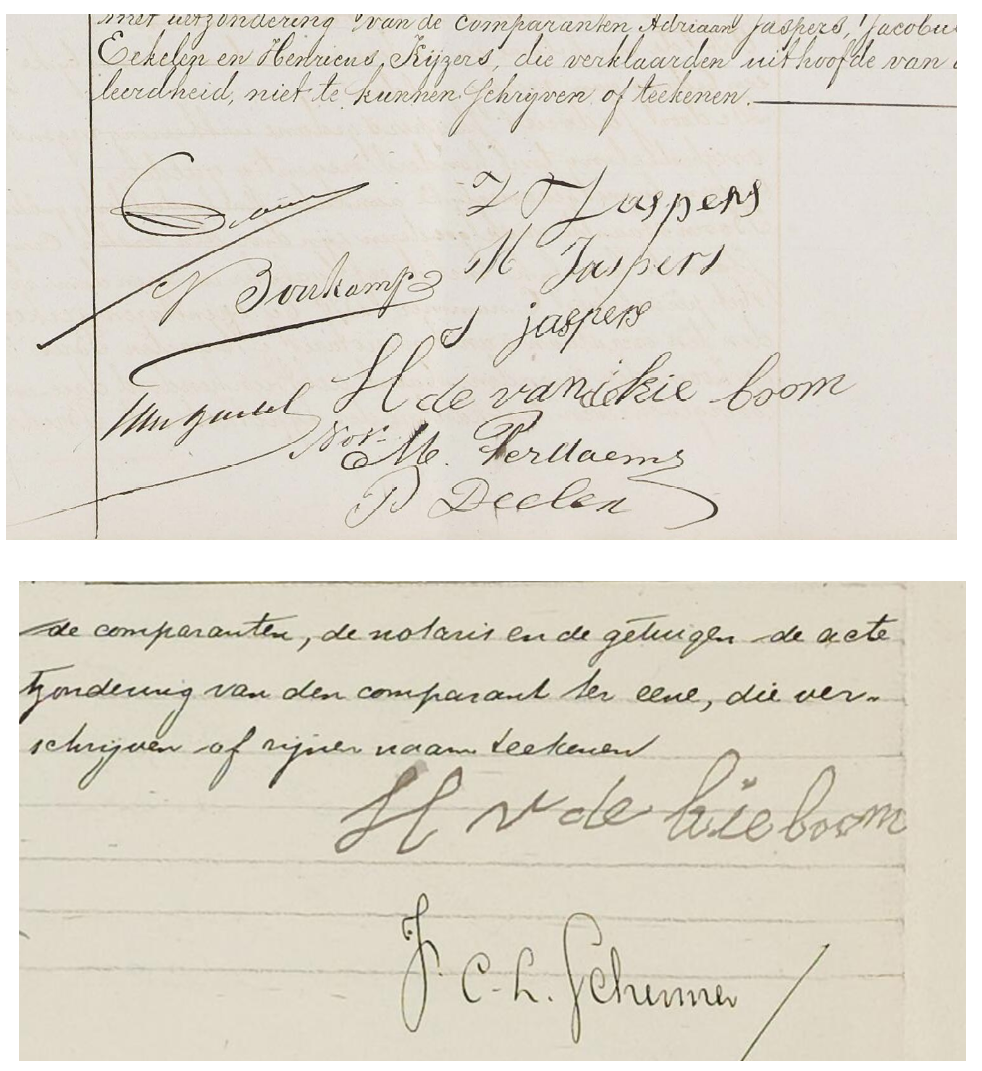 met uitzondering van de comparanten Adriaan Jaspers, Jacobu
Eekelen en Henricus Kijzers, die verklaarden uit hoofde van
leerdheid, niet te kunnen schrijven of teekenen.
J Jaspers
M Jaspers
Bonkamp
J jaspers
H de van kie boom
Not.
M. Perdaems
P Deelen
de comparanten, de notaris en de getuigen de acte
tzondering van den comparant ter eene, die ver-
schrijven of zijner naam teekenen
H v de kieboom
J. C. h. Schemmer